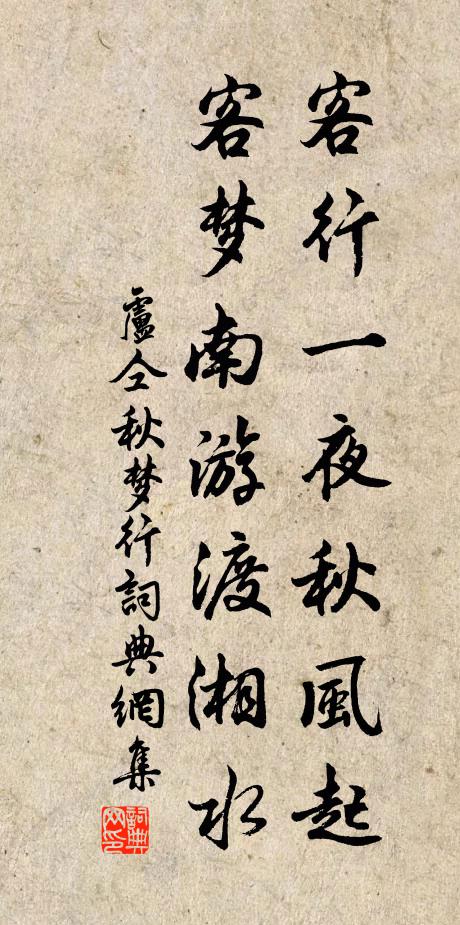 客行一夜秋風起
客梦南游渡湘水
盧仝秋梦行詞典網集
詞典网印